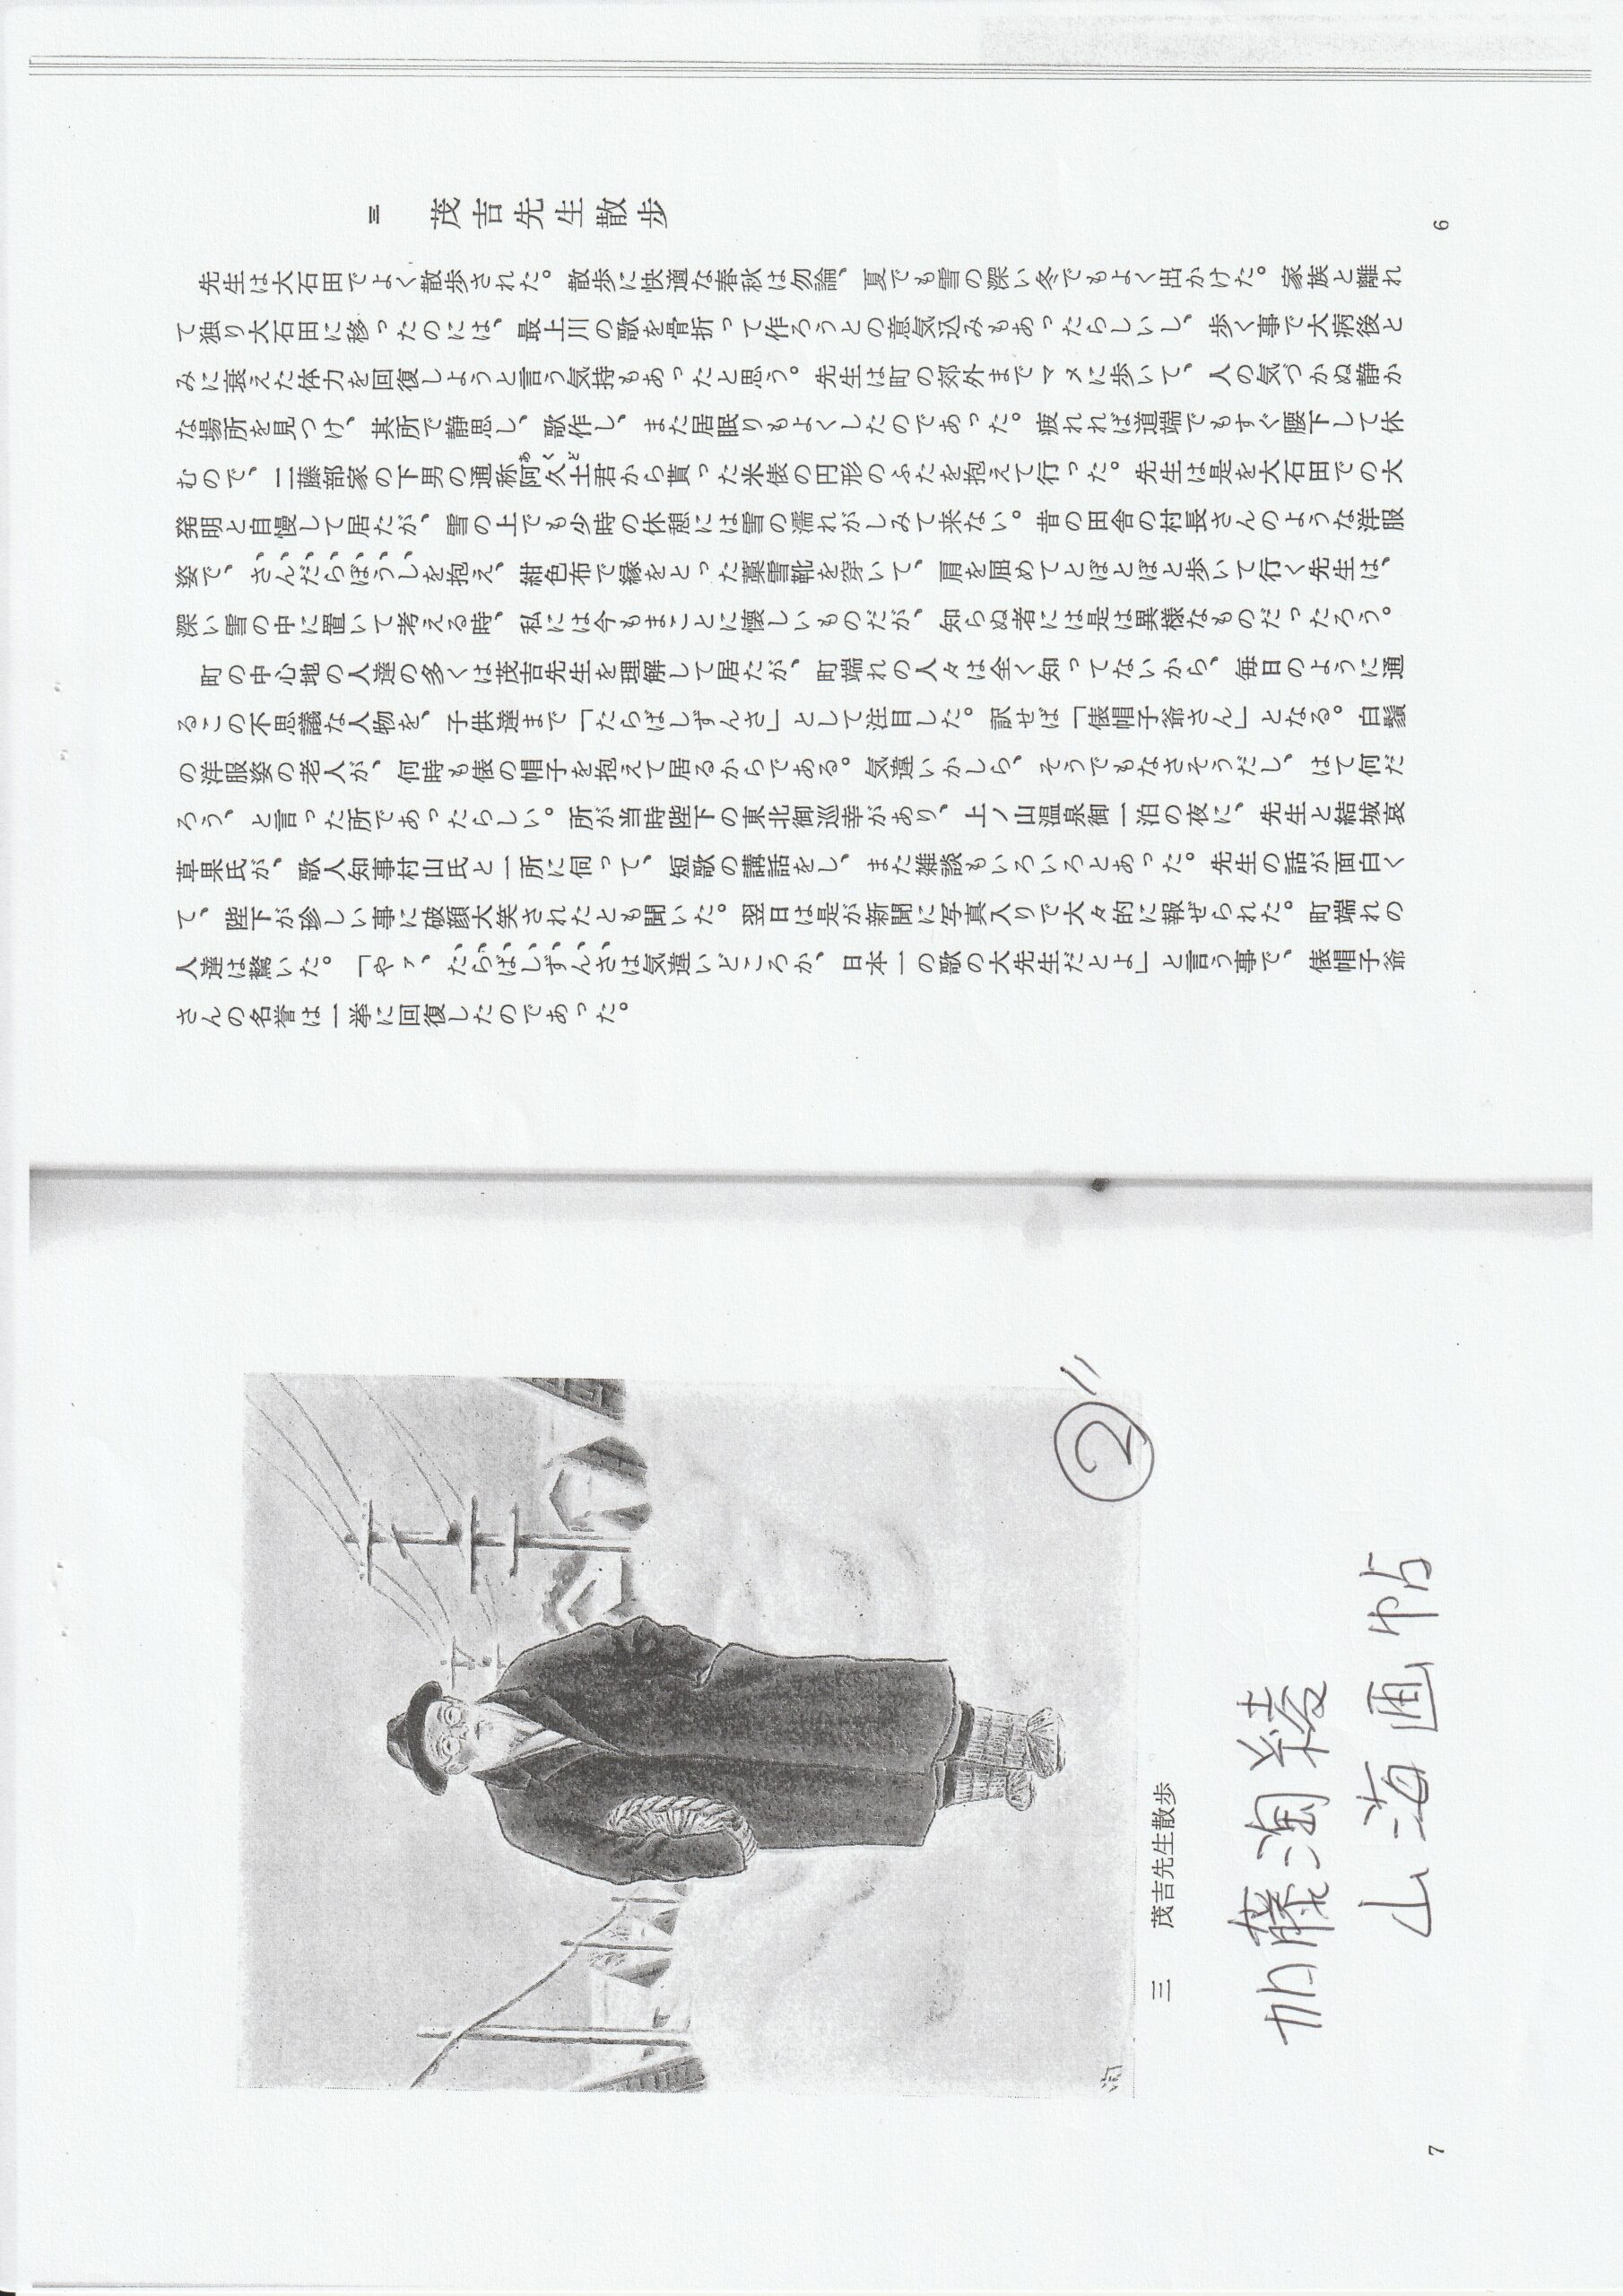 三　茂吉先生散歩
先生は大石田でよく散歩された。散歩に快適な春秋は勿論、夏でも雪の深い冬でもよく出かけた。家族と離れ
て独り大石田に移ったのには、最上川の歌を骨折って作ろうとの意気込みもあったらしいし、歩く事で大病後と
みに衰えた体力を回復しようと言う気持もあったと思う。先生は町の郊外までマメに歩いて、人の気づかぬ静か
な場所を見つけ、其所で静思し、歌作し、また居眠りもよくしたのであった。疲れれば道端でもすぐ腰下して休
むので、二藤部家の下男の通称阿久土君から貰った米俵の円形のふたを抱えて行った。先生は是を大石田での大
発明と自慢して居たが、雪の上でも少時の休憩には雪の濡れがしみて来ない。昔の田舎の村長さんのような洋服
姿で、さんだらぼうしを抱え、紺色布で縁をとった藁雪靴を穿いて、肩を屈めてとぼとぼと歩いて行く先生は、
深い雪の中に置いて考える時、私には今もまことに懐しいものだが、知らぬ者には是は異様なものだったろう。
町の中心地の人達の多くは茂吉先生を理解して居たが、町端れの人々は全く知ってないから、毎日のように通
るこの不思議な人物を、子供達まで「たらばしずんさ」として注目した。訳せば「俵帽子爺さん」となる。白鬚
の洋服姿の老人が、何時も俵の帽子を抱えて居るからである。気違いかしら、そうでもなさそうだし、はて何だ
ろう、と言った所であったらしい。所が当時陛下の東北御巡幸があり、上ノ山温泉御一泊の夜に、先生と結城哀
草果氏が、歌人知事村山氏と一所に伺って、短歌の講話をし、また雑談もいろいろとあった。先生の話が面白く
て、陛下が珍しい事に破顔大笑されたとも聞いた。翌日は是が新聞に写真入りで大々的に報ぜられた。町端れの
人達は驚いた。「やァ、たらばしずんさは気違いどころか、日本一の歌の大先生だとよ」と言う事で、俵帽子爺
さんの名誉は一挙に回復したのであった。
6
②〃
三　茂吉先生散歩
加藤淘綾
山海画帖
7